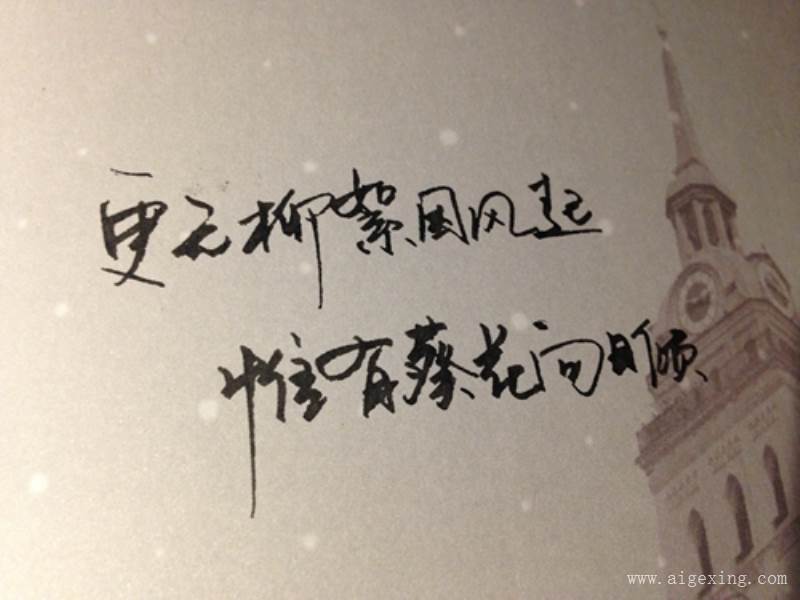 更无柳絮因风起
惟有葵花向日倾
www.aigexing.com